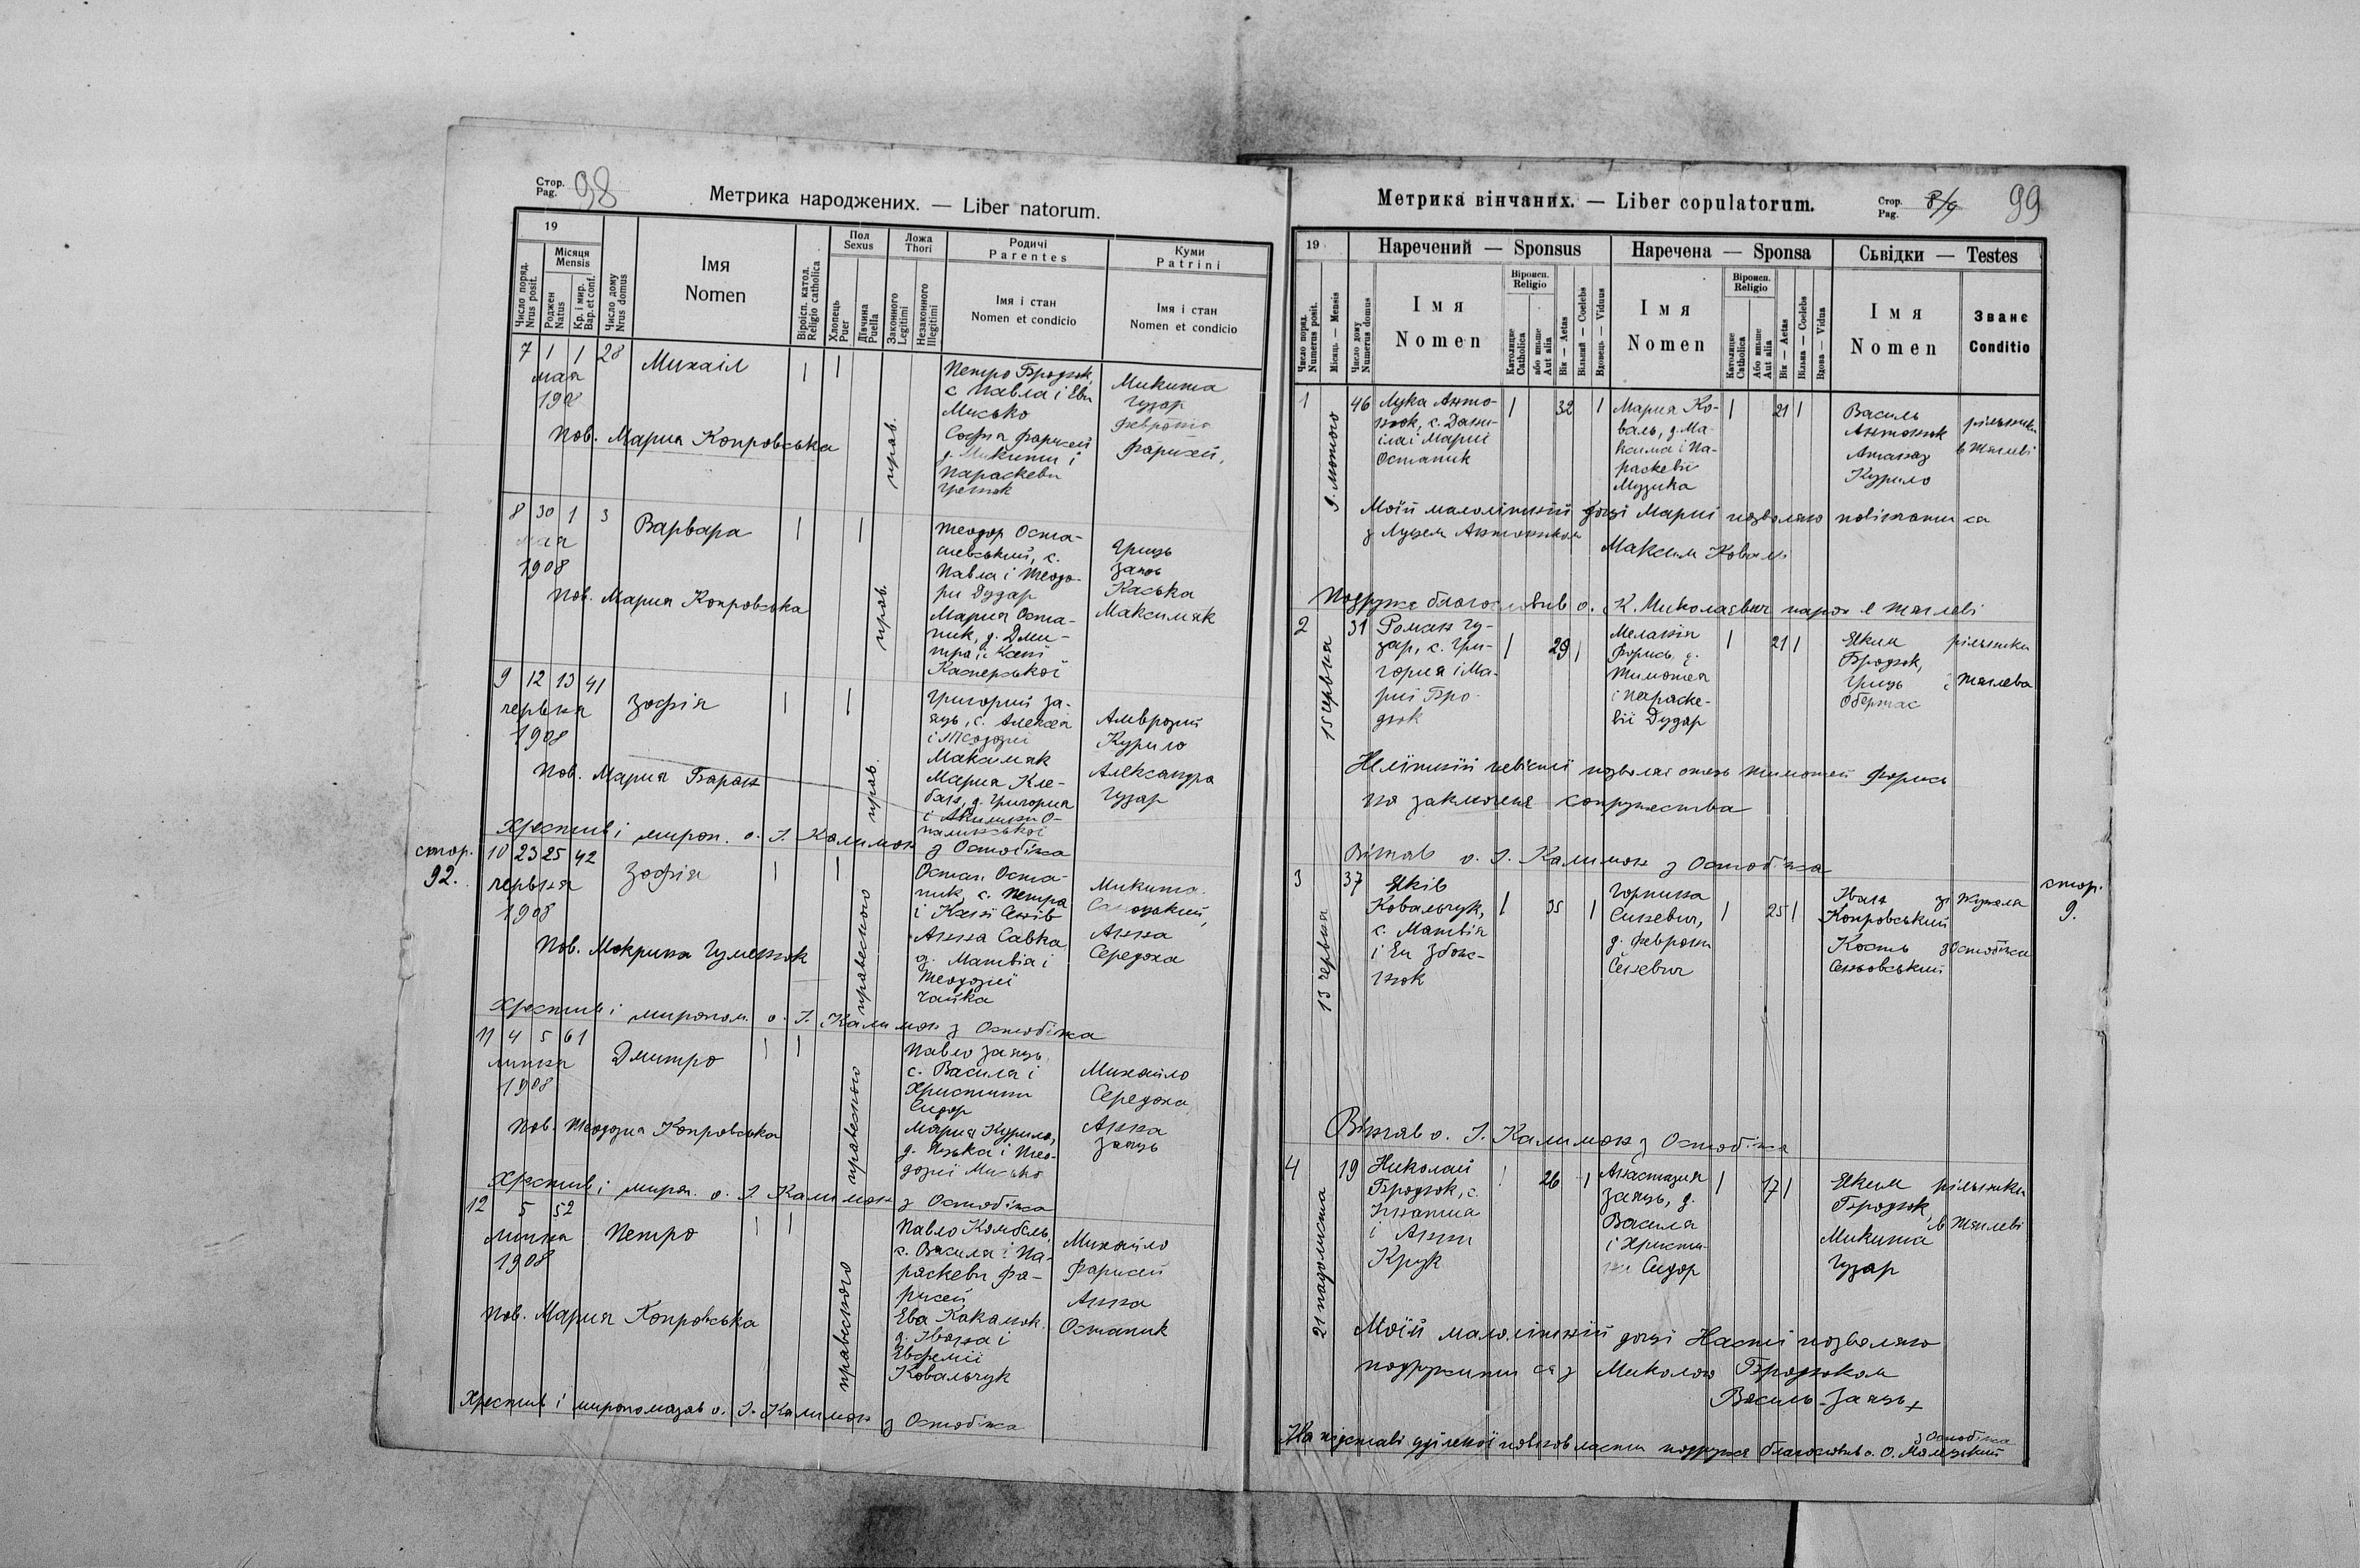 Стор.
Pag.
98
Метрика народжених. — Liber natorum.
19
Число поряд.
Nrus posit.
Місяця
Mensis
Роджен
Natus
Кр. і мир.
Bap. et conf.
Число дому
Nrus domus
Імя
Nomen
Віроісп. катол.
Religio catholica
Пол
Sexus
Хлопець
Puer
Дівчина
Puella
Ложа
Thori
Законного
Legitimi
Незаконного
Illegitimi
Родичі
Parentes
Імя і стан
Nomen et condicio
Куми
Patrini
Імя і стан
Nomen et condicio
7 1 1 28
мая
190
Михаіл
прав.
Петро Бродюк
с. Павла і Еви
Мисько
Софія Фарисей
д. Микити і
Параскеви
Микита
Гузар
Февронія
Фарисей,
пов. Мария Копровська
8 30 1 3
мая
1908
Варвара
прав.
Теодор Оста-
шевський, с.
Павла і Теодо-
ри Дудар
Мария Оста-
пик, д. Дми-
тра і Касі
Касперської
Гриць
Заяць
Каська
Максимяк
пов. Мария Копровська
9 12 13 41
червня
1908
Зофія
прав.
Григорий За-
яць, с. Алексея
і Теодозиї
Максимяк
Мария Кле-
бан, д. Григория
і Акилини О-
палинської
Амврозий
Курило
Александра
Гузар
пов. Мария Баран
Хрестив і миром. о. І. Калимон з Остобіжа
стор.
92.
10 23 25 42
червня
1908
Зофія
правесного
Остап Оста-
пик, с. Петра
і Касі Сенів
Анна Савка
д. Матвія і
Теодозиї
Чайка
Микита
Анна
Середоха
пов. Мокрина Гуменюк
Хрестив і миропом. о. І. Калимон з Остобіжа
11 4 5 61
липня
1908
Дмитро
правесного
Павло Заяць
с. Василя і
Христини
Сидор
Мария Курило,
д. Яцька і Тео-
дозиї Мисько
Михайло
Середоха,
Анна
Заяць
пов. Теодозиа Копровська
Хрестив і мироп. о. І. Калимон з Остобіжа
12 5 52
липня
1908
Петро
правесного
Павло Комбель,
с. Василя і Па-
раскеви Фа-
рисей
Ева Какамюк
д. Івана і
Евфемії
Ковальчук
Михайло
Фарисей
Анна
Остапик
пов. Мария Копровська
Хрестив і миропомазав о. І. Калимон з Остобіжа
Метрика вінчаних. — Liber copulatorum.
Стор.
Pag.
8/9
99
19
Число поряд.
Numerus posit.
Місяць. — Mensis
Число дому
Numerus domus
Наречений — Sponsus
Імя
Nomen
Віроисп.
Religio
Католицке
Catholica
або иньше
Aut alia
Вік — Aetas
Вільний — Coelebs
Вдовець — Viduus
Наречена — Sponsa
Імя
Nomen
Віроисп.
Religio
Католицке
Catholica
Або иньше
Aut alia
Вік — Aetas
Вільна — Coelebs
Вдова — Vidua
Сьвідки — Testes
Імя
Nomen
Званє
Conditio
1
9. лютого
46
Лука Анто-
нюк, с. Дани-
іла і Мариї
Остапик
32
Мария Ко-
валь, д. Ма-
ксима і Па-
раскевії
Музика
21
Василь
Антонюк
Атаназ
Курило
рільники
в Тяглеві
Моїй малолітній доці Мариї позваляю повінчати ся
з Лукем Антонюком
Максим Коваль
Подруже благословив о. К. Миколаєвич парох в Тяглеві
2
15 червня
31
Роман Гу-
зар, с. Гри-
гория і Ма-
риї Бро-
дюк
29
Меланія
Форись, д.
Тимотея
і Параске-
вії Дудар
21
Яким
Бродюк,
Гриць
Обертас
рільники
і Тяглева
Нелітній невісті позваляє отець Тимотей Форись
на заключенє супружества
Вінчав о. І. Калимон з Остобіжа
3
13 червня
37
Яків
Ковальчук,
с. Матвія
35
Горпина
Синевич,
д. Февронии
Сеневич
25
Іван
Копровський
Кость
Сеньовський
зі Журавля
з Остобіжа
стор.
9.
Вінчав о. І. Калимон з Остобіжа
4
21 падолиста
19
Николай
Бродюк, с.
Ігнатиа
і Анни
Крук
26
Анастазия
Заяць, д.
Василя
і Христи-
ни Сидор
17
Яким
Бродюк,
Микита
Гузар
рільники
в Тяглеві
Моїй малолітній доці Насті позваляю
подружити ся з Миколою Бродюком
Василь Заяць +
На підставі уділеної повновласти подруже благословив о. О. Малецький
з Остобіжа